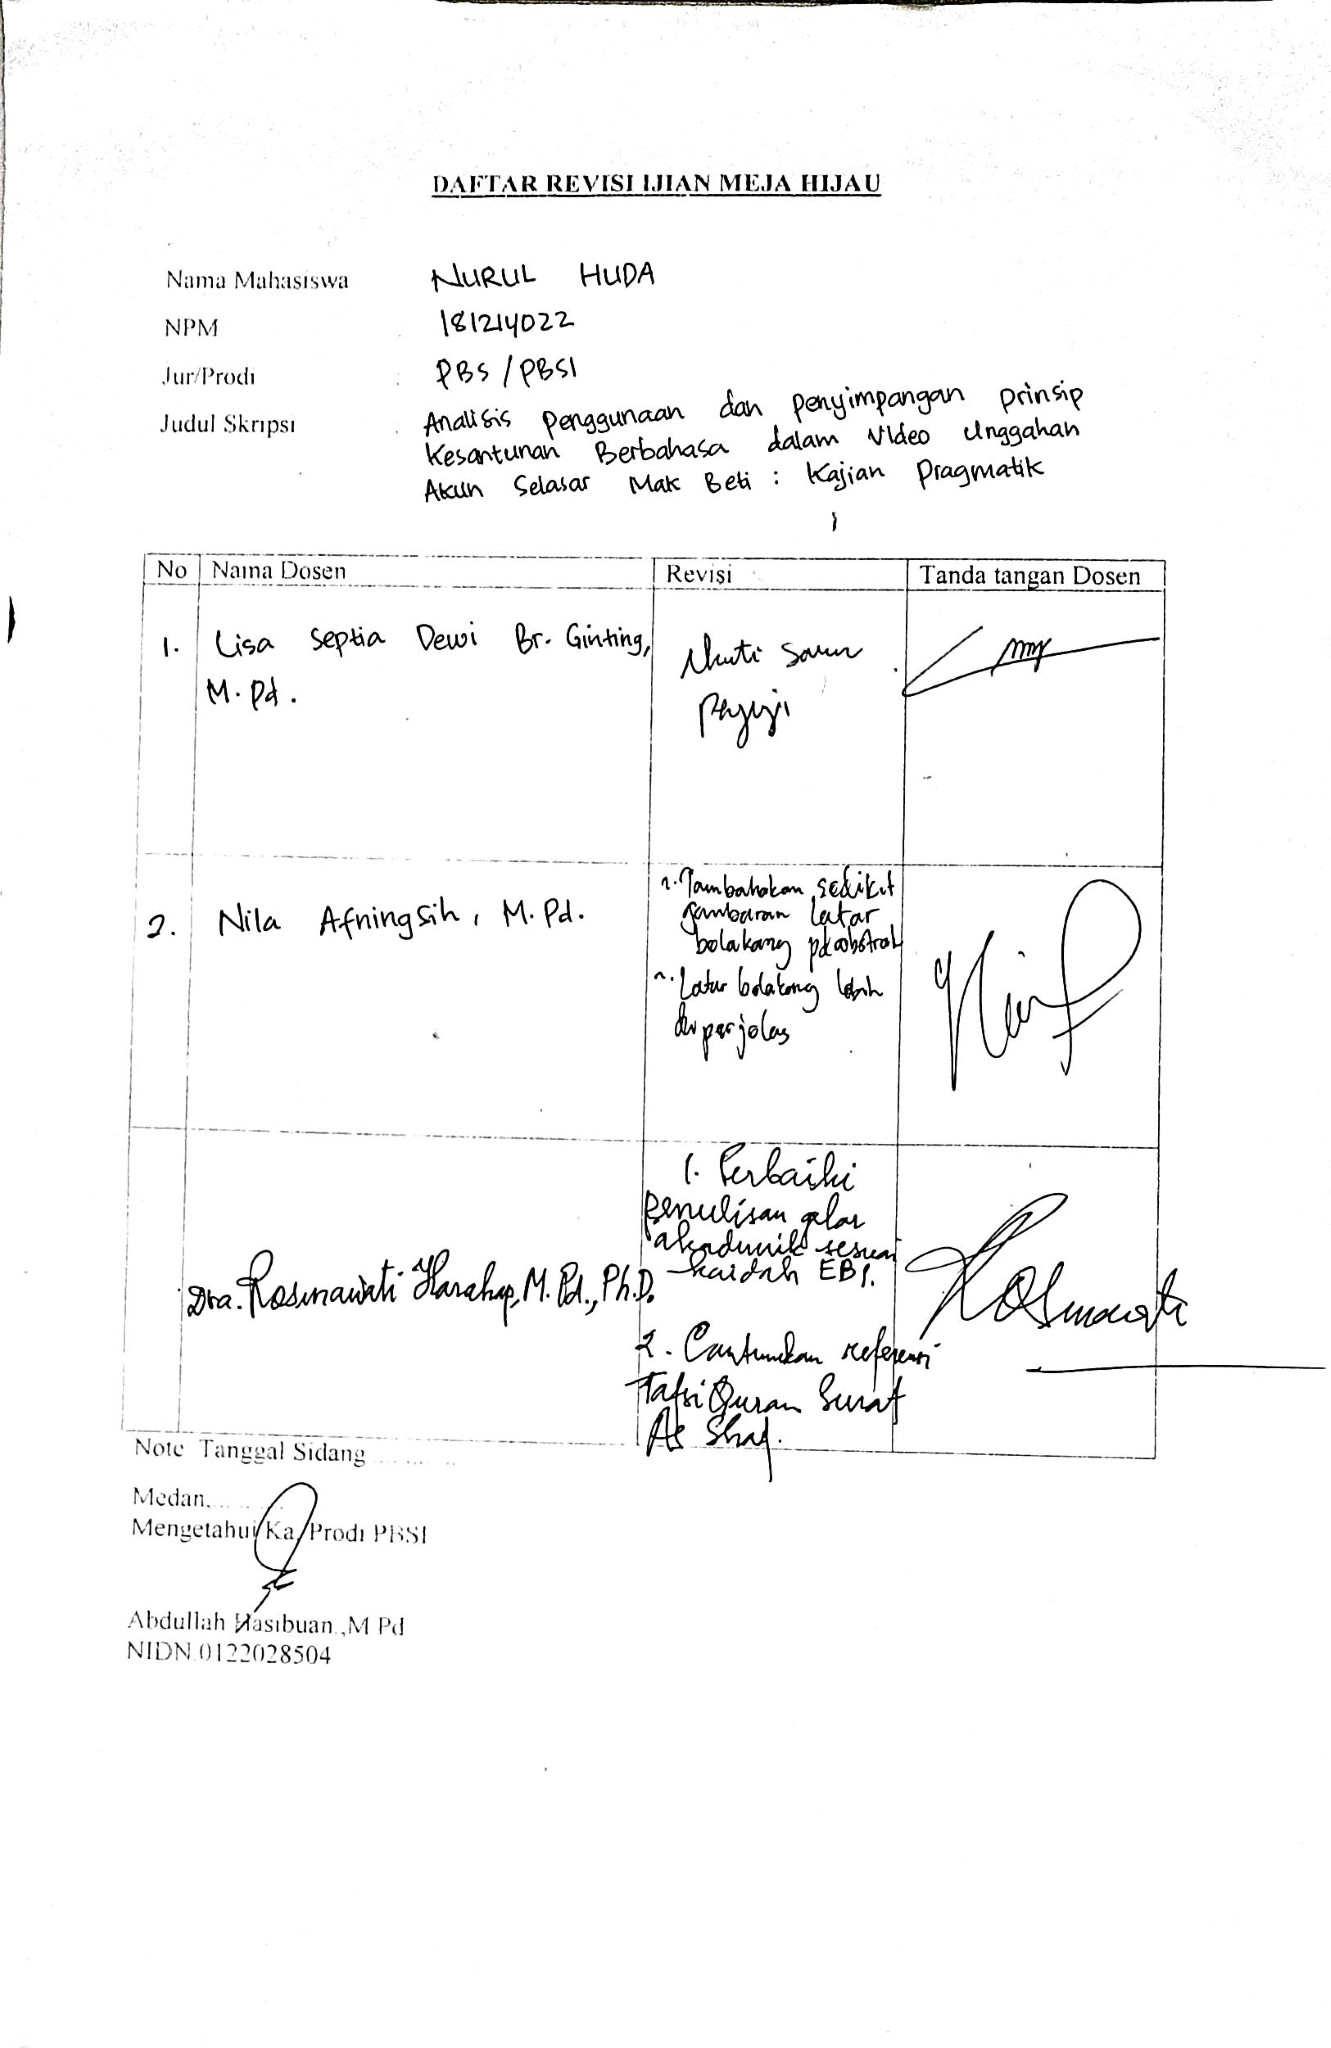 DAFTAR REVISI UJIAN MEJA HIJAU
Nama Mahasiswa NURUL HUDA
NPM : 181214022
Jur/Prodi : PBS / PBSI
Judul Skripsi : Analisis Penggunaan dan Penyimpangan Prinsip
Kesantunan Berbahasa dalam Video Unggahan
Akun Selasar Mak Beti : Kajian Pragmatik
No Nama Dosen Revisi Tanda tangan Dosen
1. Lisa Septia Dewi Br. Ginting,
M. Pd.
Ikuti saran
penguji
2. Nila Afningsih, M. Pd.
Tambahakan sedikit
gambaran latar
belakang pd abstrak
Latar belakang lebih
diperjelas
Dra. Rosmawati Harahap, M. Pd., Ph.D.
1. Perbaiki
penulisan gelar
akademik sesuai
kaidah EBI.
2. Cantumkan referensi
Tafsi Quran Surat
As Shaf.
Rosmawati
Note Tanggal Sidang ..........
Medan, ..........
Mengetahui Ka. Prodi PBSI
Abdullah Hasibuan.,M Pd
NIDN 0122028504